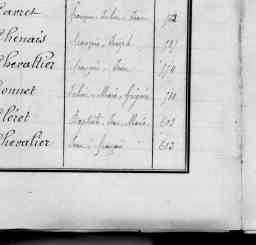 avret François Julien Jean 752
Chenais François Joseph 787
Chevallier François Jean 774
onnet Julien Marie Grégoire 710
Cléret Baptiste Jean Marie 603
Chevalier Jean François 613